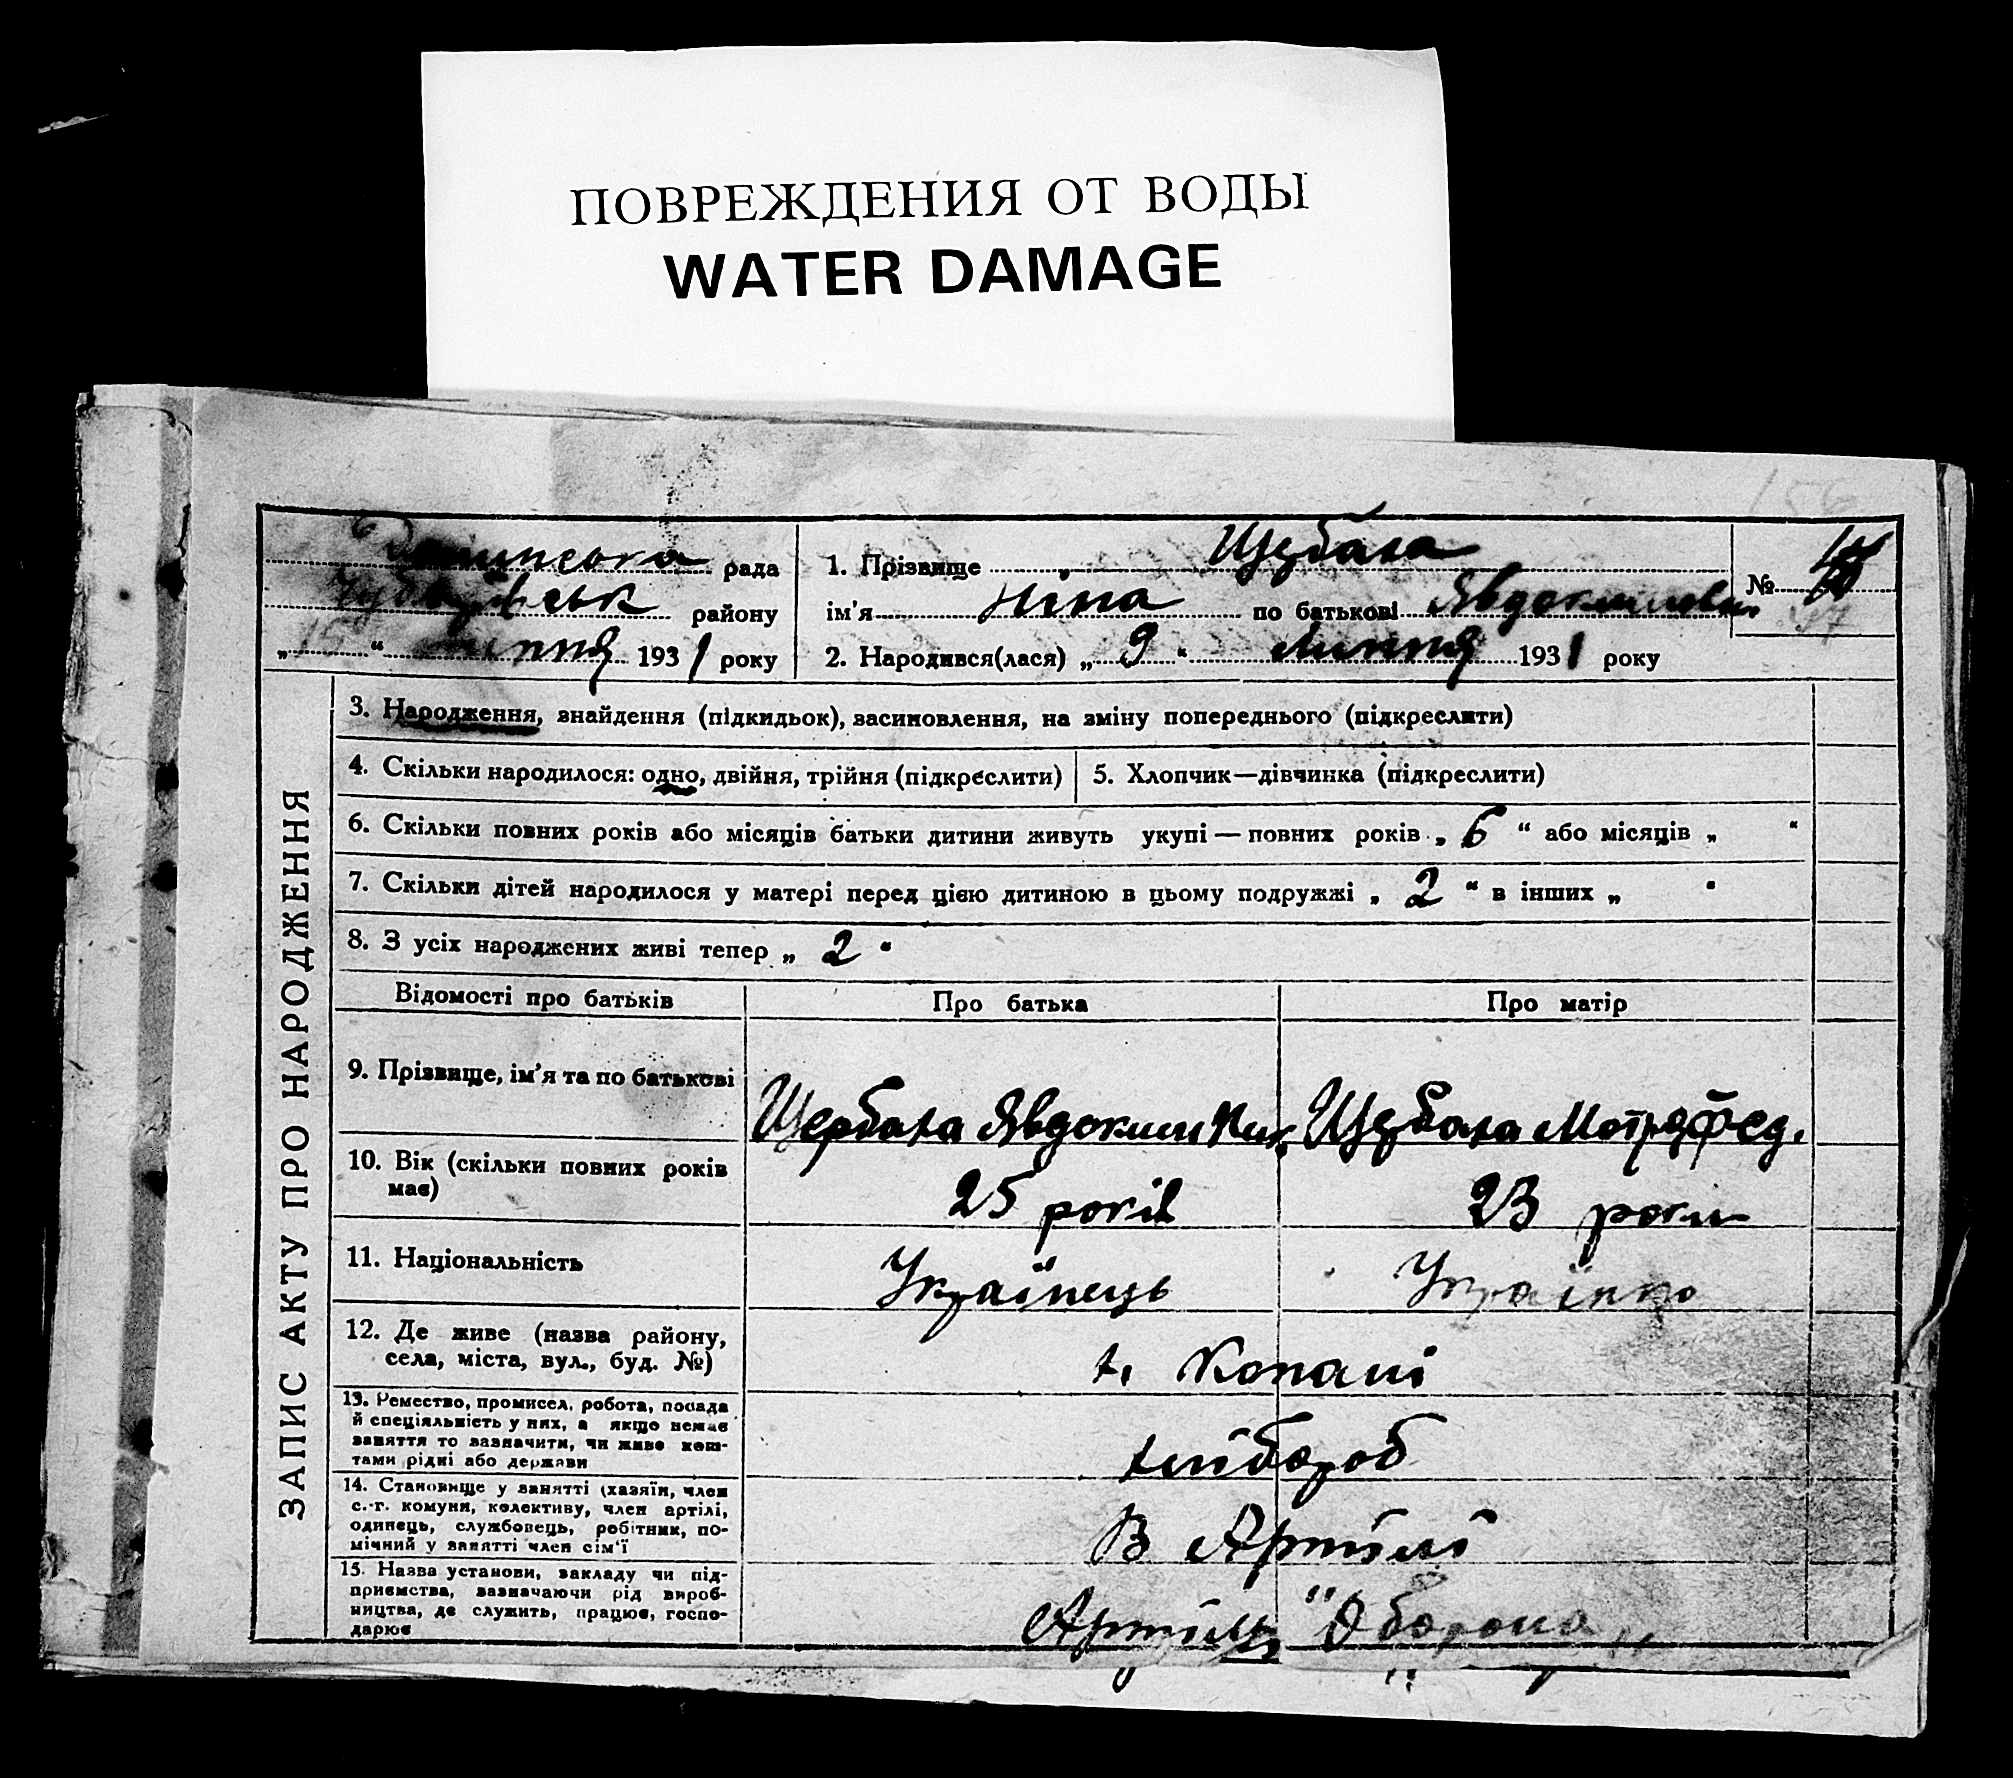 ПОВРЕЖДЕНИЯ ОТ ВОДЫ
WATER DAMAGE
рада
району
липня 1931 року
1. Прізвище Щербака
ім'я Ніна по батькові Явдокимовна
№
2. Народився(лася) „9“ Липня 1931 року
ЗАПИС АКТУ ПРО НАРОДЖЕННЯ
3. Народження, знайдення (підкидьок), васиновлення, на зміну попереднього (підкреслити)
4. Скільки народилося: одно, двійня, трійня (підкреслити)
5. Хлопчик—дівчинка (підкреслити)
6. Скільки повних років або місяців батьки дитини живуть укупі — повних років „6“ або місяців „ “
7. Скільки дітей народилося у матері перед цією дитиною в цьому подружжі „2“ в інших „ “
8. З усіх народжених живі тепер „2“
Відомості про батьків
Про батька
Про матір
9. Прізвище, ім'я та по батькові
Щербака Явдоким
Щербака Мотря Фед.
10. Вік (скільки повних років має)
25 років
23 роки
11. Національність
Українець
Українка
12. Де живе (назва району,
села, міста, вул., буд. №)
с. Копані
13. Ремество, промисел, робота, посада
й спеціяльність у них, а якщо немає
заняття то зазначити, чи живе кош-
тами рідні або держави
хлібороб
14. Становище у занятті (хазяїн, член
с.-г. комуни, колективу, член артілі,
одинець, службовець, робітник, по-
мічний у занятті член сім'ї
В Артілі
15. Назва установи, закладу чи під-
приємства, зазначаючи рід вироб-
ництва, де служить, працює, госпо-
дарює
Артіль "Оборона"